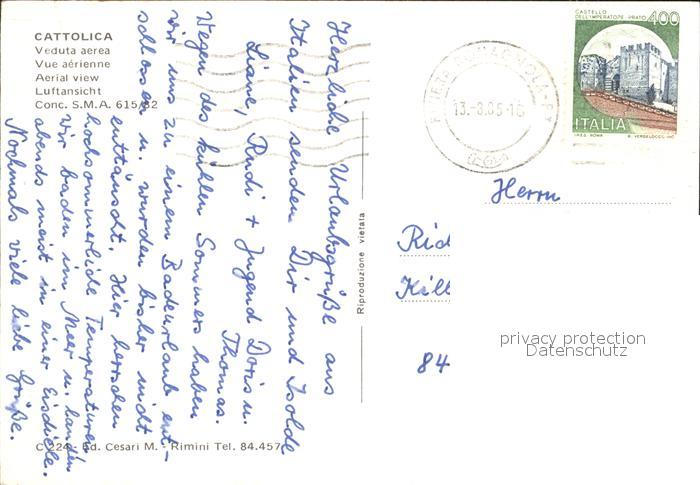 CATTOLICA
Veduta aerea
Vue aérienne
Aerial view
Luftansicht
Conc. S.M.A. 615/82
Herzliche Urlaubsgrüße aus
Italien senden Dir und Isolde
Liane, Rudi + Jugend Doris u.
Thomas.
Wegen des kühlen Sommers haben
wir uns zu einem Badeurlaub ent-
schlossen u. wurden bisher nicht
enttäuscht. Hier herrschen
hochsommerliche Temperaturen
Wir baden im Meer u. landen
abends meist in einer Eisdiele.
Nochmals viele liebe Grüße.
C 224 - Ed. Cesari M. - Rimini Tel. 84.457
Riproduzione vietata
13.-8.85-16
CASTELLO
DELL'IMPERATORE-PRATO 400
ITALIA
I.P.Z.S. ROMA
Herrn
Rid
Kill
84
privacy protection
Datenschutz